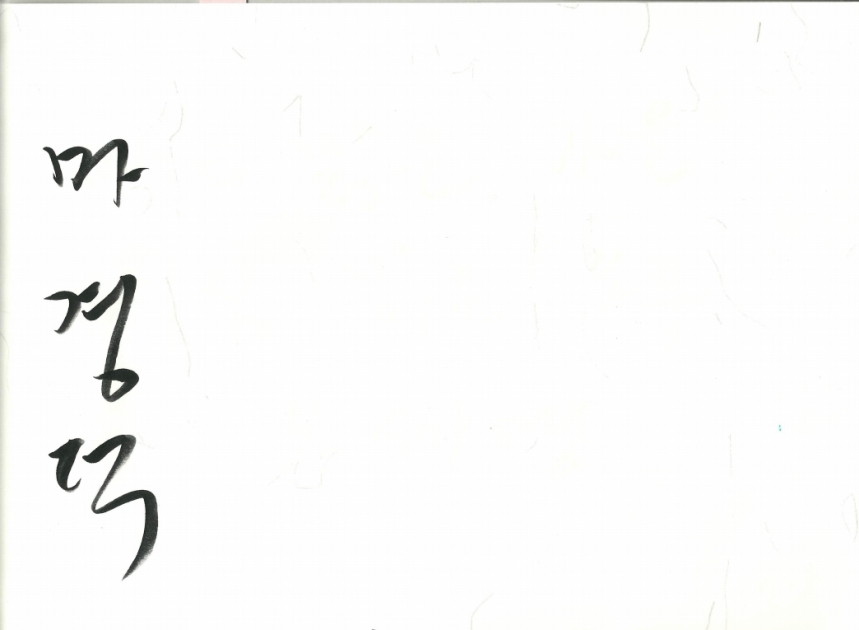 마경덕